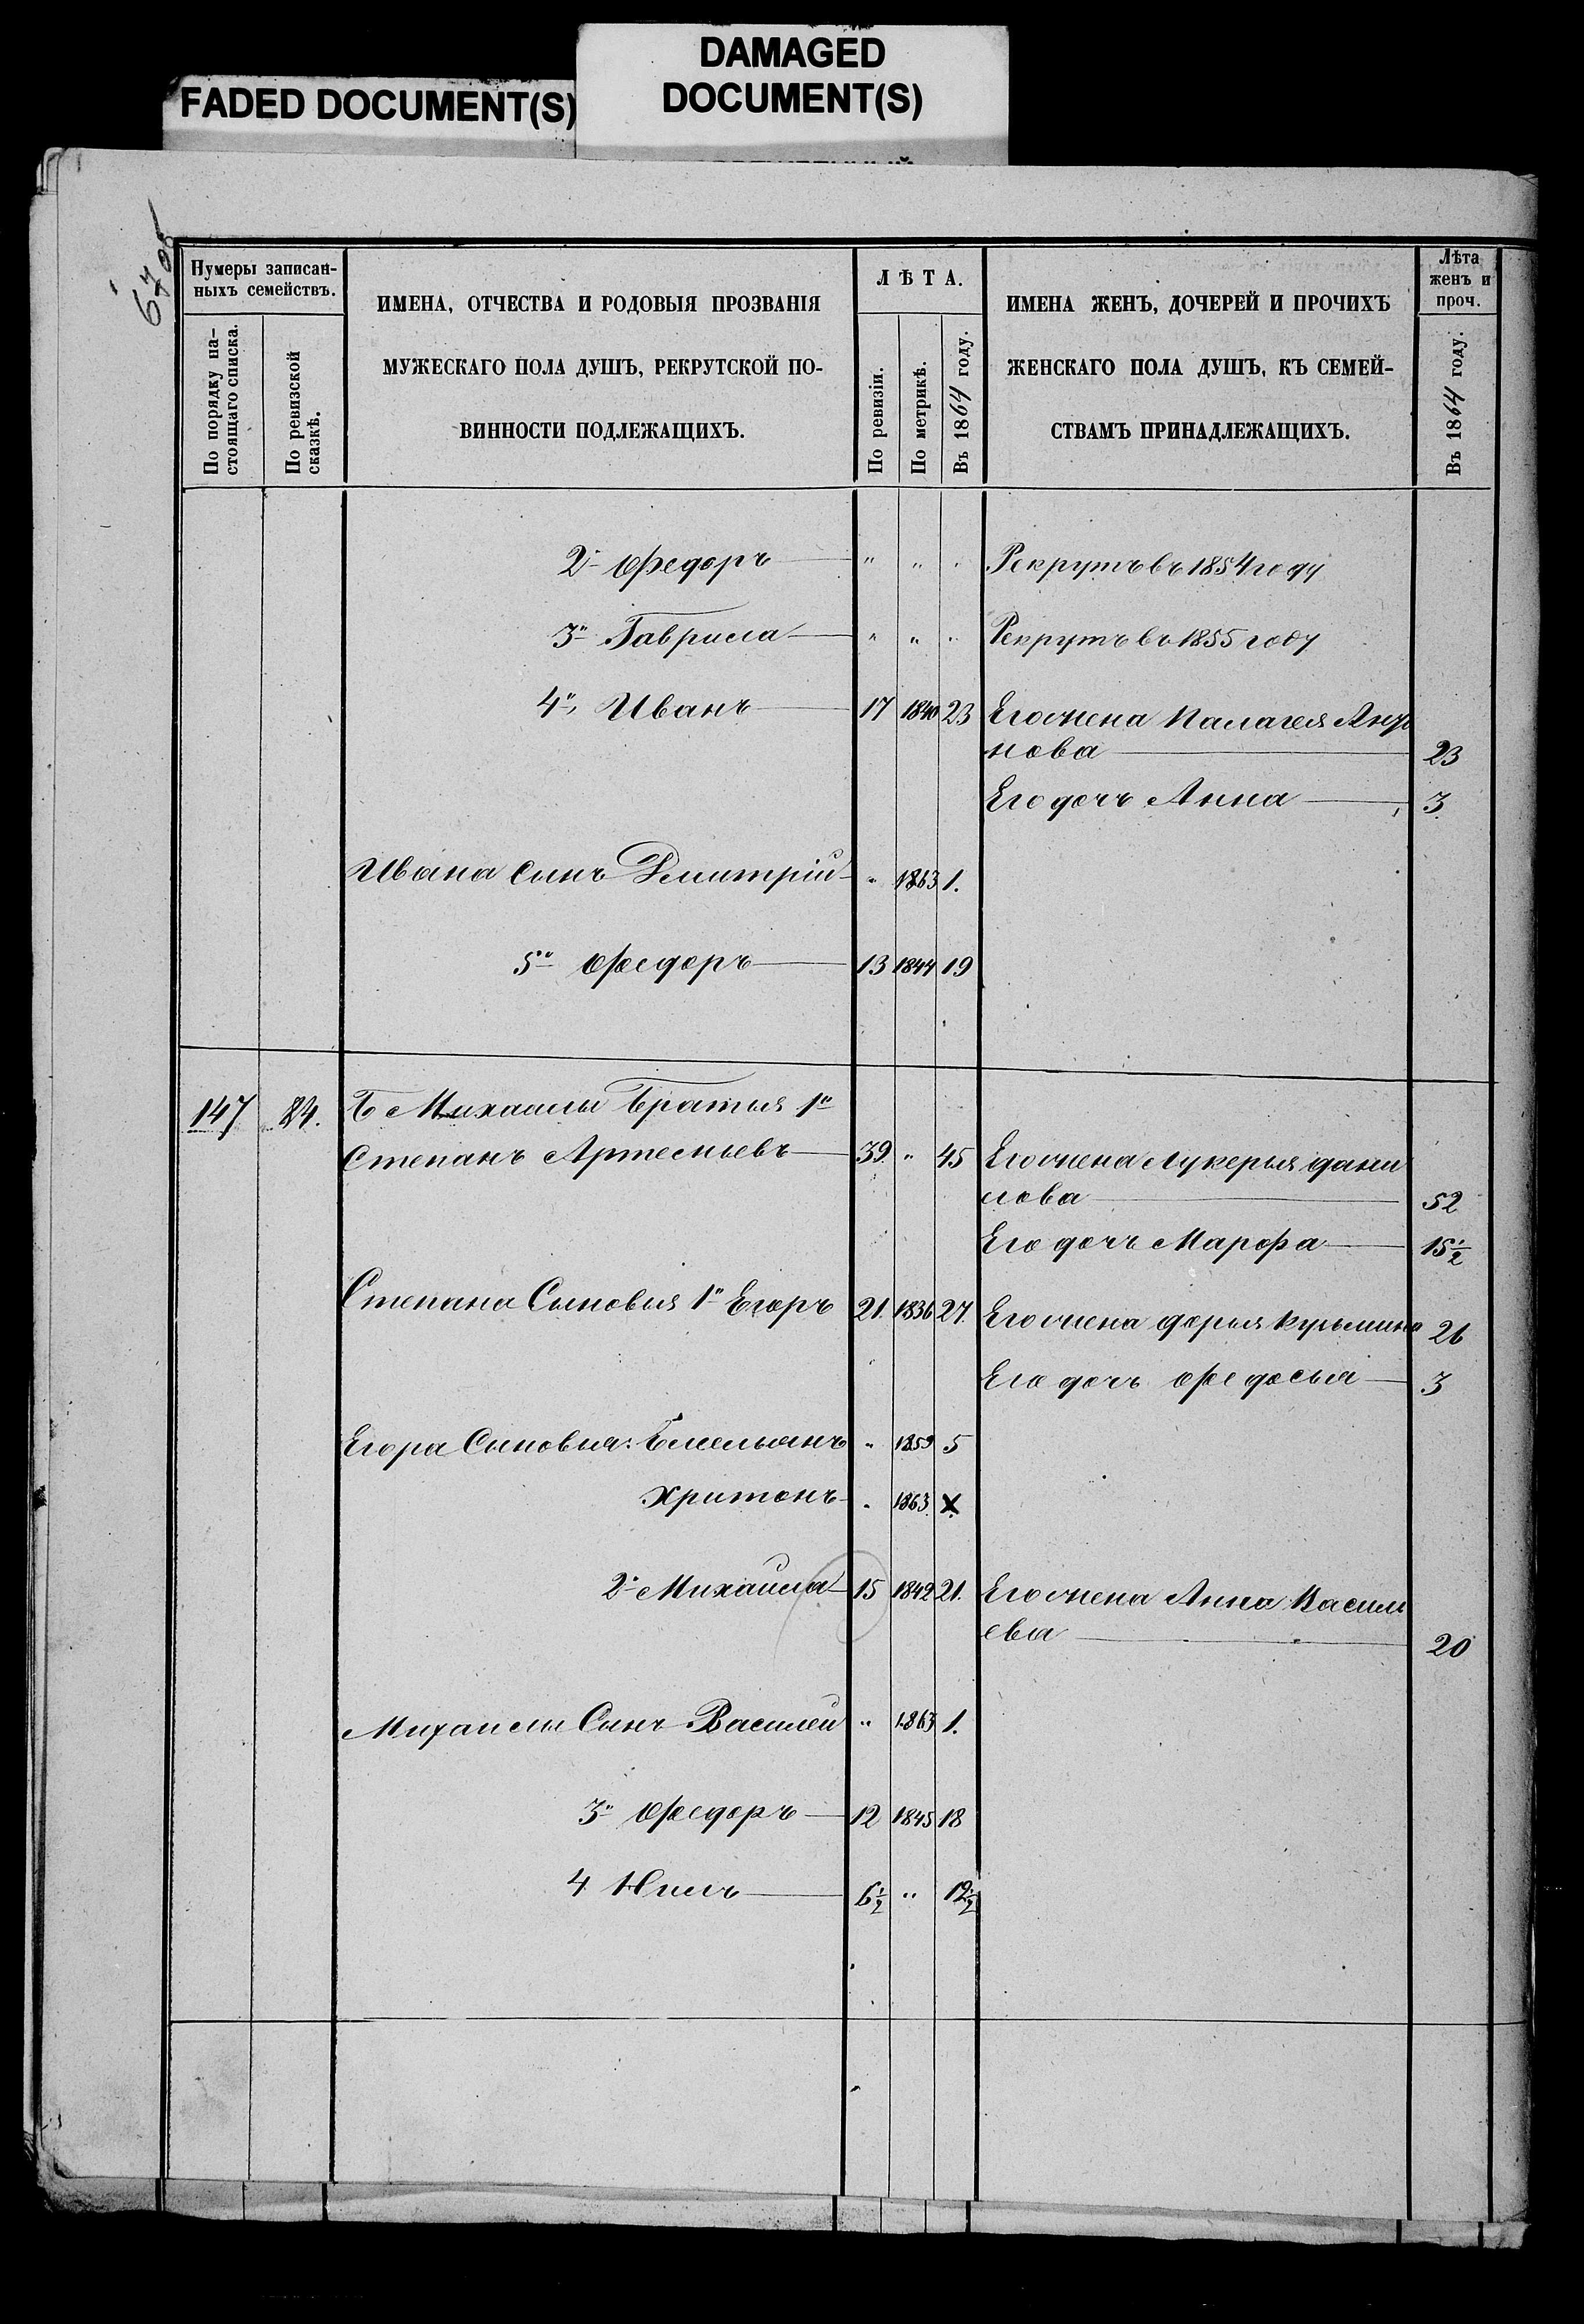 FADED DOCUMENT(S)
DAMAGED
DOCUMENT(S)
Нумеры записан-
ныхъ семействъ.
По порядку на-
стоящаго списка.
По ревизской
сказкѣ.
ИМЕНА, ОТЧЕСТВА И РОДОВЫЯ ПРОЗВАНІЯ
МУЖЕСКАГО ПОЛА ДУШЪ, РЕКРУТСКОЙ ПО-
ВИННОСТИ ПОДЛЕЖАЩИХЪ.
ЛѢТА.
По ревизіи.
По метрикѣ.
Въ 1864 году.
ИМЕНА ЖЕНЪ, ДОЧЕРЕЙ И ПРОЧИХЪ
ЖЕНСКАГО ПОЛА ДУШЪ, КЪ СЕМЕЙ-
СТВАМЪ ПРИНАДЛЕЖАЩИХЪ.
Лѣта
женъ и
проч.
Въ 1864 году.
2й Федоръ " " " Рекрутъ въ 1854 году
3й Гаврила " " " Рекрутъ въ 1855 году
4й Иванъ 17 1840 23 Его жена Палагея
нова 23
Его дочь Анна 3
Ивана сынъ Дмитрій " 1863 1.
5й Федоръ 13 1844 19
147 84. Михаилы Братья 1й
Степанъ Артемьевъ 39 " 45 Его жена Лукерья Дани
лова 52
Его дочь Марфа 15½
Степана Сыновья 1й Егоръ 21. 1836 27 Его жена Дарья Кузьмина 26
Его дочь Федосья 3
Егора Сыновья: Емельянъ " 1859 5
Хритонъ " 1863 X
2й Михаила 15 1842 21. Его жена Анна Василь
ева 20
Михаилы Сынъ Василей " 1863 1.
3й Федоръ 12 1845 18
4 Нилъ 6½ " 12½